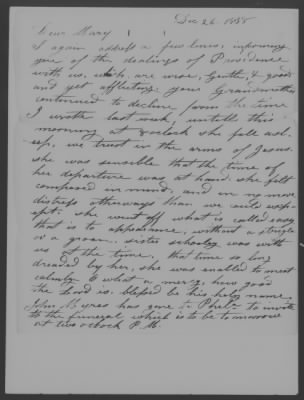 Dec 26 1888
Dear Mary
I again address a few lines, informing
you of the dealings of Providence
with us, which, are wise, Gentle, & good
and yet afflicting. your Grandmother
continued to decline from the time
I wrote last week, untill this
morning at 8 oclock she fell asl-
eep, we trust in the arms of Jesus.
she was sensible that the time of
her departure was at hand, she felt
composed in mind, and in no more
distress otherways than we could exp-
ect. she went off what is called easy
that is to appearance, without a struggle
or a groan. sister was with
us at the time, that time so long
dreaded by her, she was enabled to meet
calmly O what a mercy, how good
the Lord is. blessed be his holy name
John Myres has gone to Phila to invite
to the funeral which is to be tomorrow
at two oclock P.M.